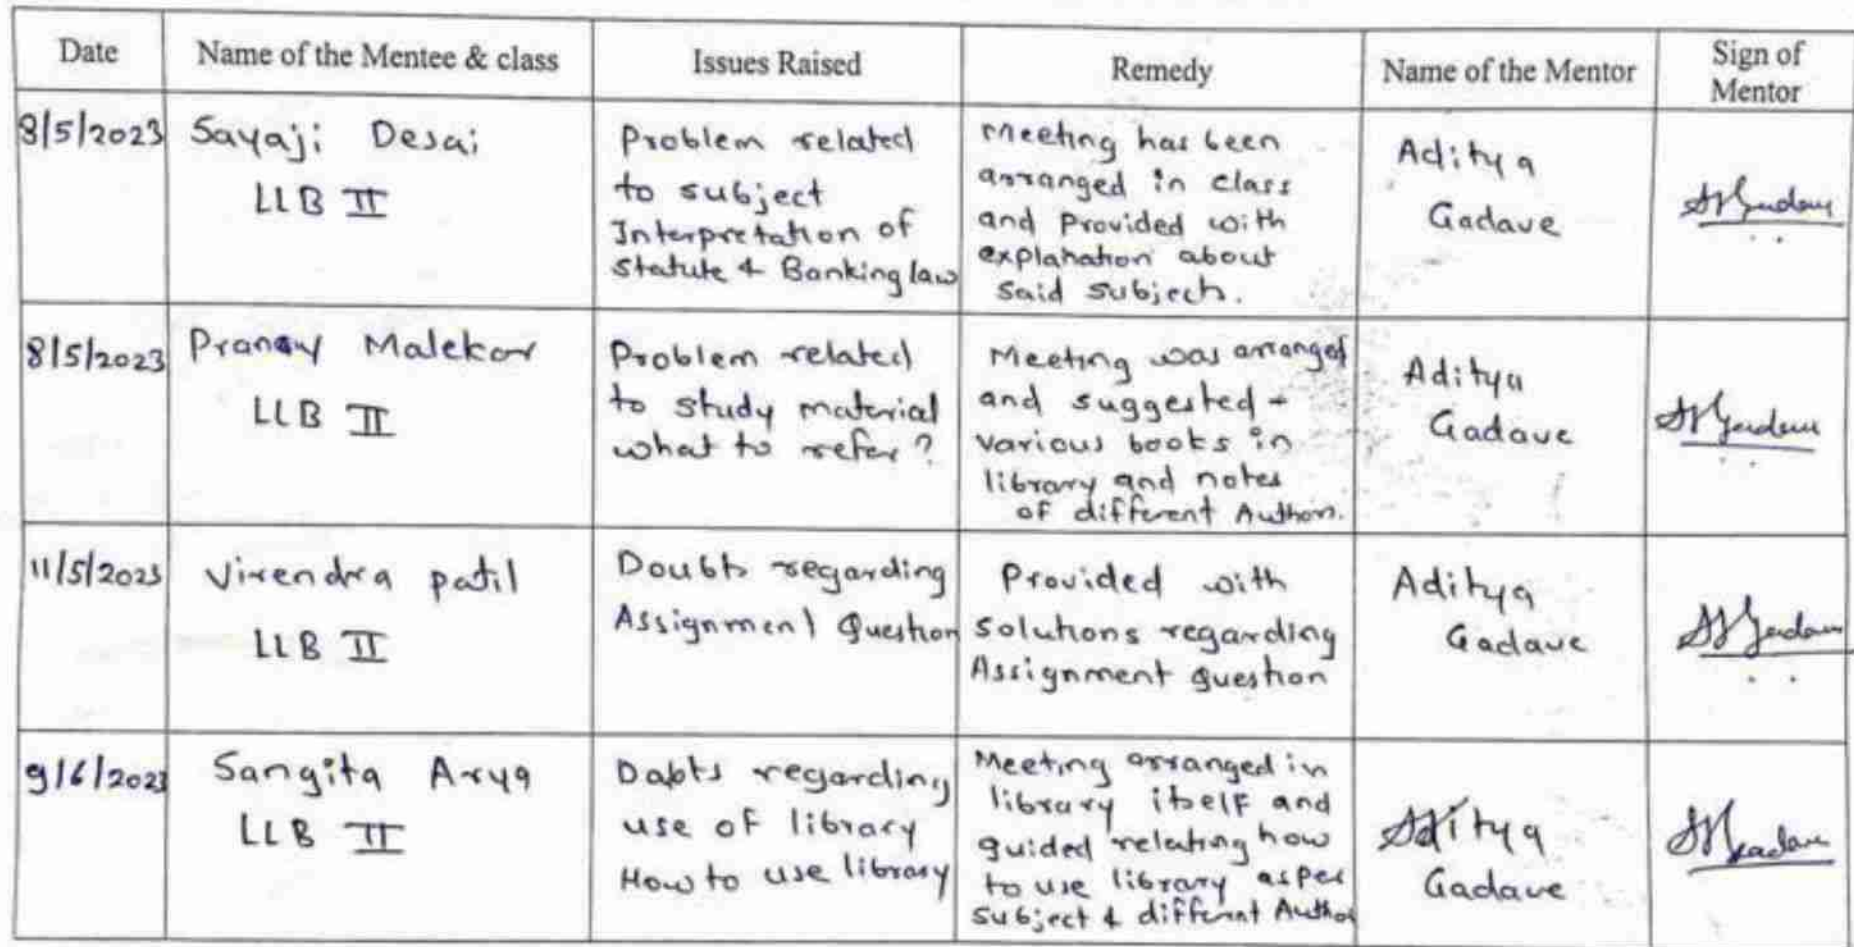 Date
Name of the Mentee & class
Issues Raised
Remedy
Name of the Mentor
Sign of
Mentor
8/5/2023
Sayaji Desai
LLB II
Problem related
to subject
Interpretation of
Statute & Banking law
Meeting has been
arranged in class
and Provided with
explanation about
said subjects.
Aditya
Gadave
8/5/2023
Pranay Malekar
LLB II
Problem related
to study material
what to refer?
Meeting was arranged
and suggested
various books in
library and notes
of different Authors.
Aditya
Gadave
11/5/2023
Virendra patil
LLB II
Doubts regarding
Assignment Question
Provided with
solutions regarding
Assignment question
Aditya
Gadave
9/6/2023
Sangita Arya
LLB II
Dabts regarding
use of library
How to use library
Meeting arranged in
library itself and
guided relating how
to use library as per
subject & different Author
Aditya
Gadave